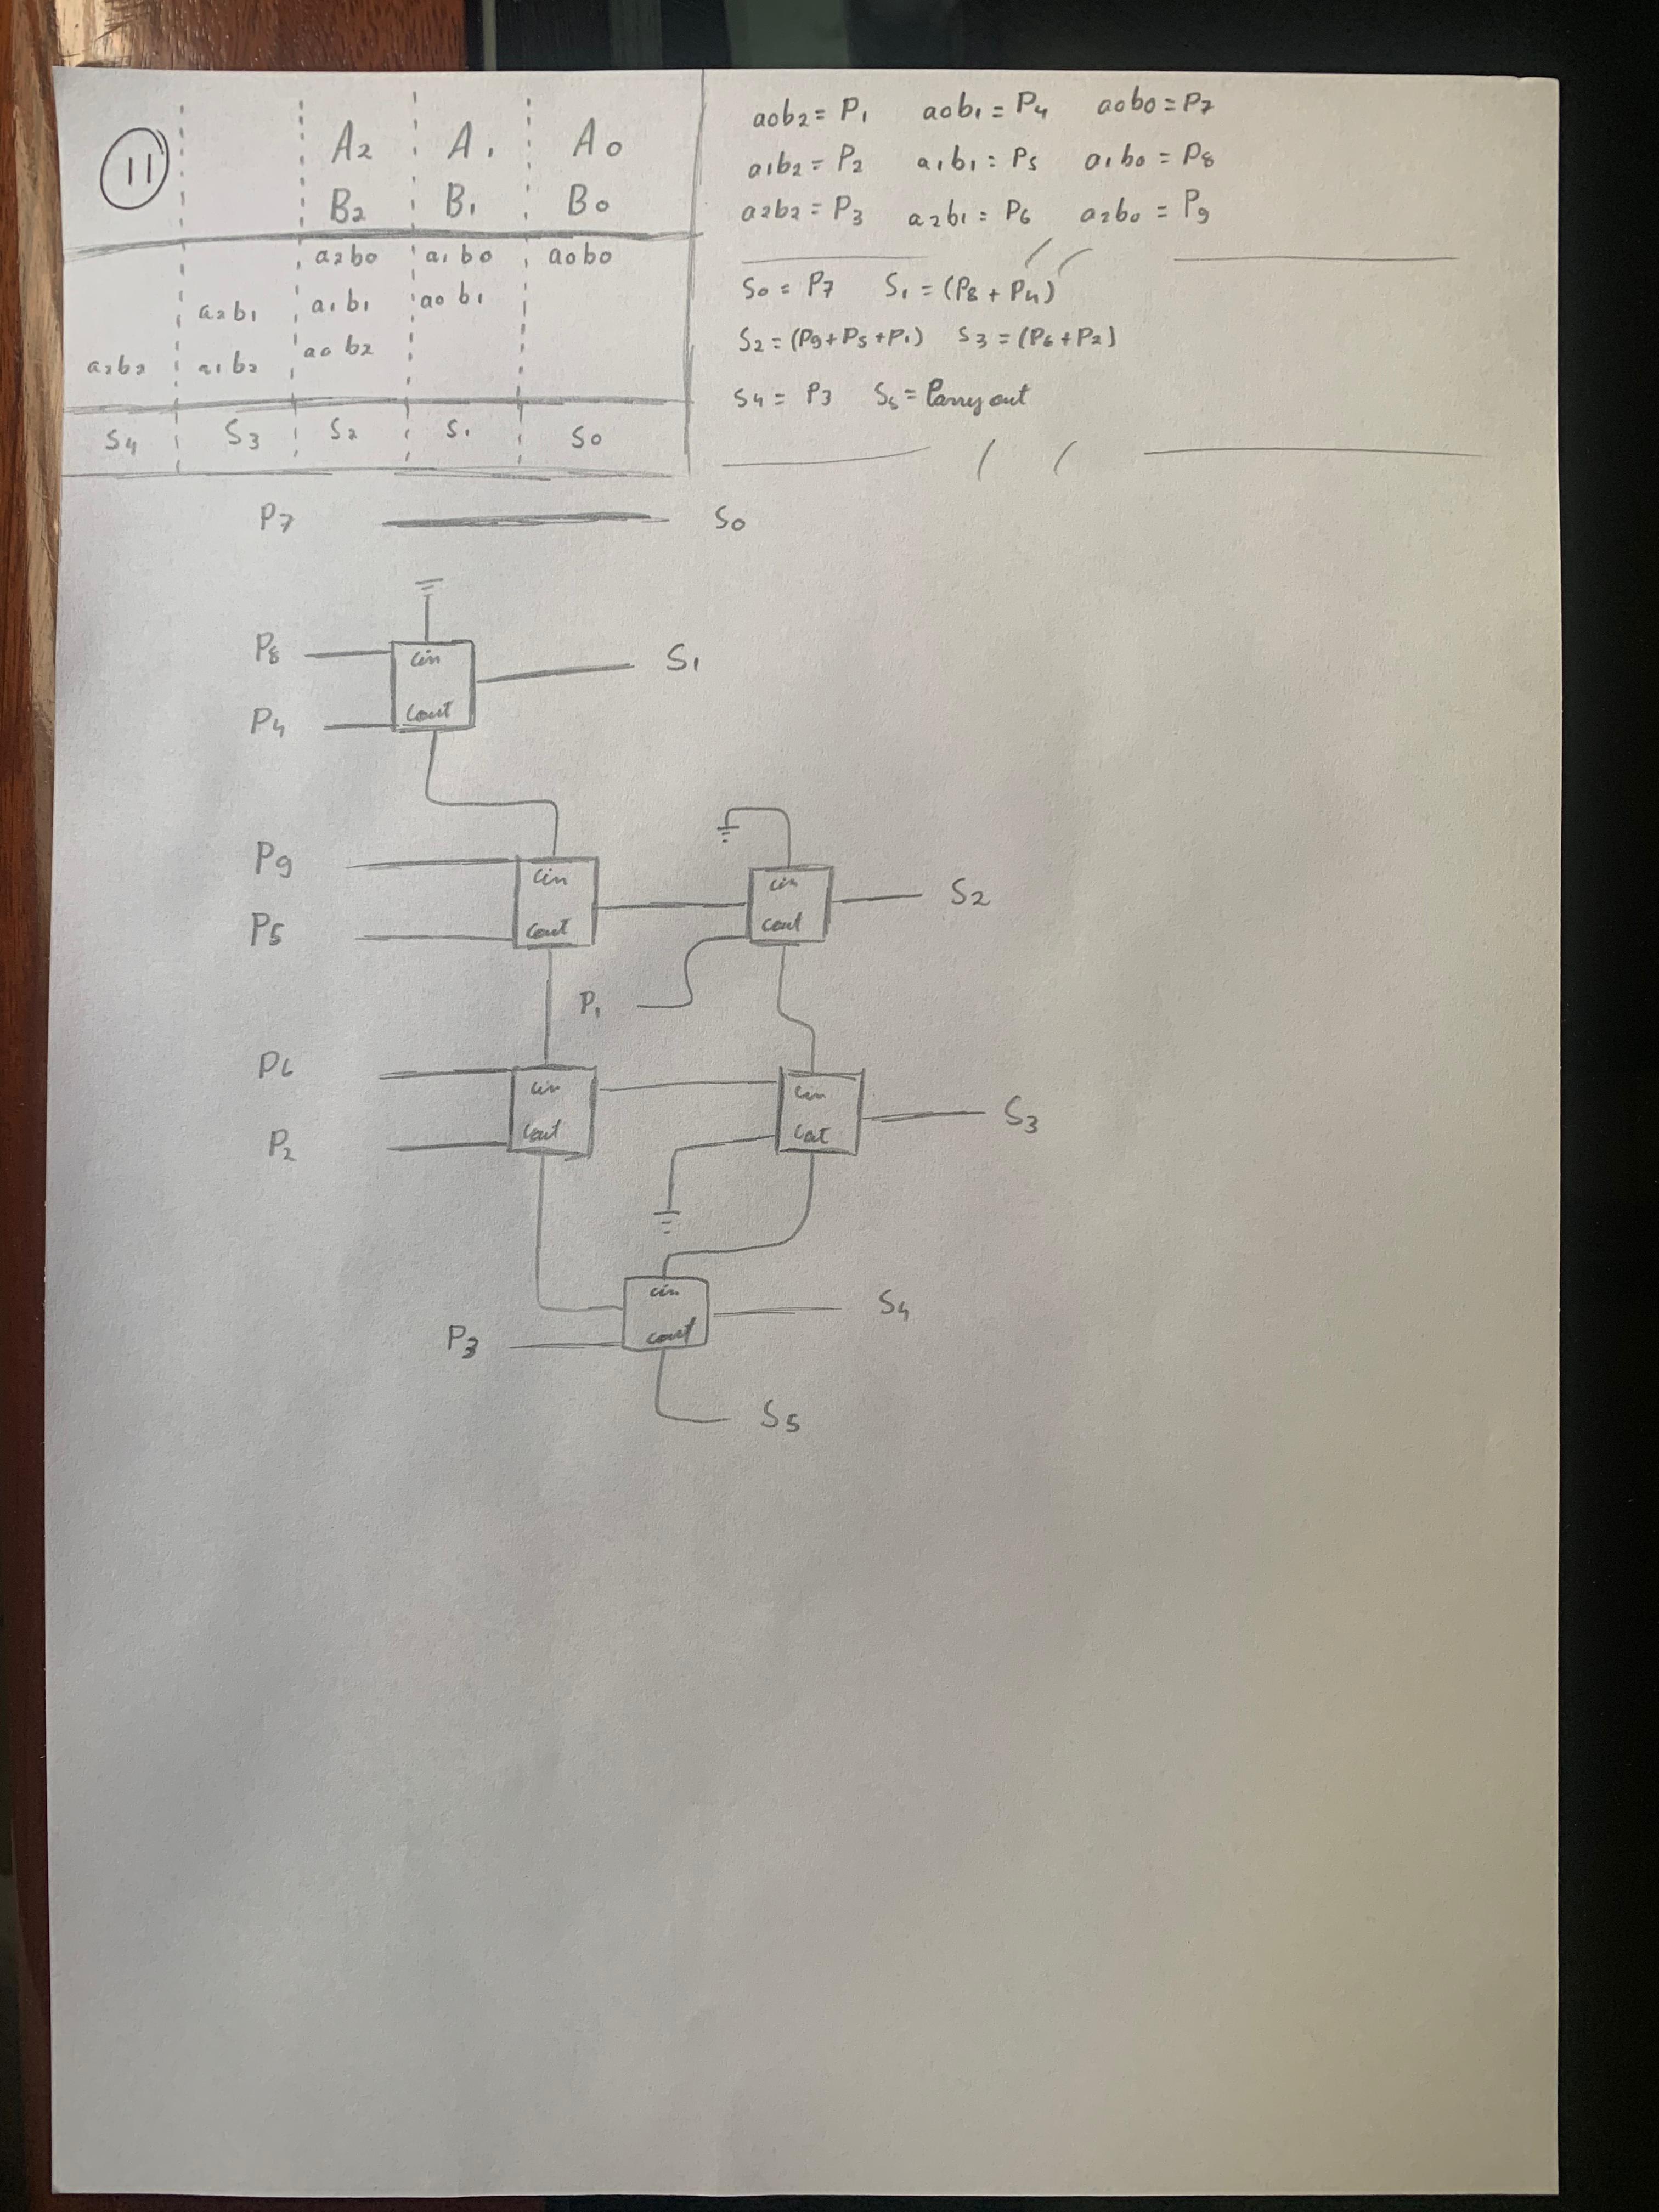 11
A2 A1 A0
B2 B1 B0
a2b0 a1b0 a0b0
a2b1 a1b1 a0b1
a2b2 a1b2 a0b2
S4 S3 S2 S1 S0
a0b2 = P1 a0b1 = P4 a0b0 = P7
a1b2 = P2 a1b1 = P5 a1b0 = P8
a2b2 = P3 a2b1 = P6 a2b0 = P9
S0 = P7 S1 = (P8 + P4)
S2 = (P9 + P5 + P1) S3 = (P6 + P2)
S4 = P3 S5 = Carry out
P7 S0
P8 cin S1
P4 cout
P9 cin cin S2
P5 cout cout
P1
P6 cin cin S3
P2 cout cout
cin S4
P3 cout
S5